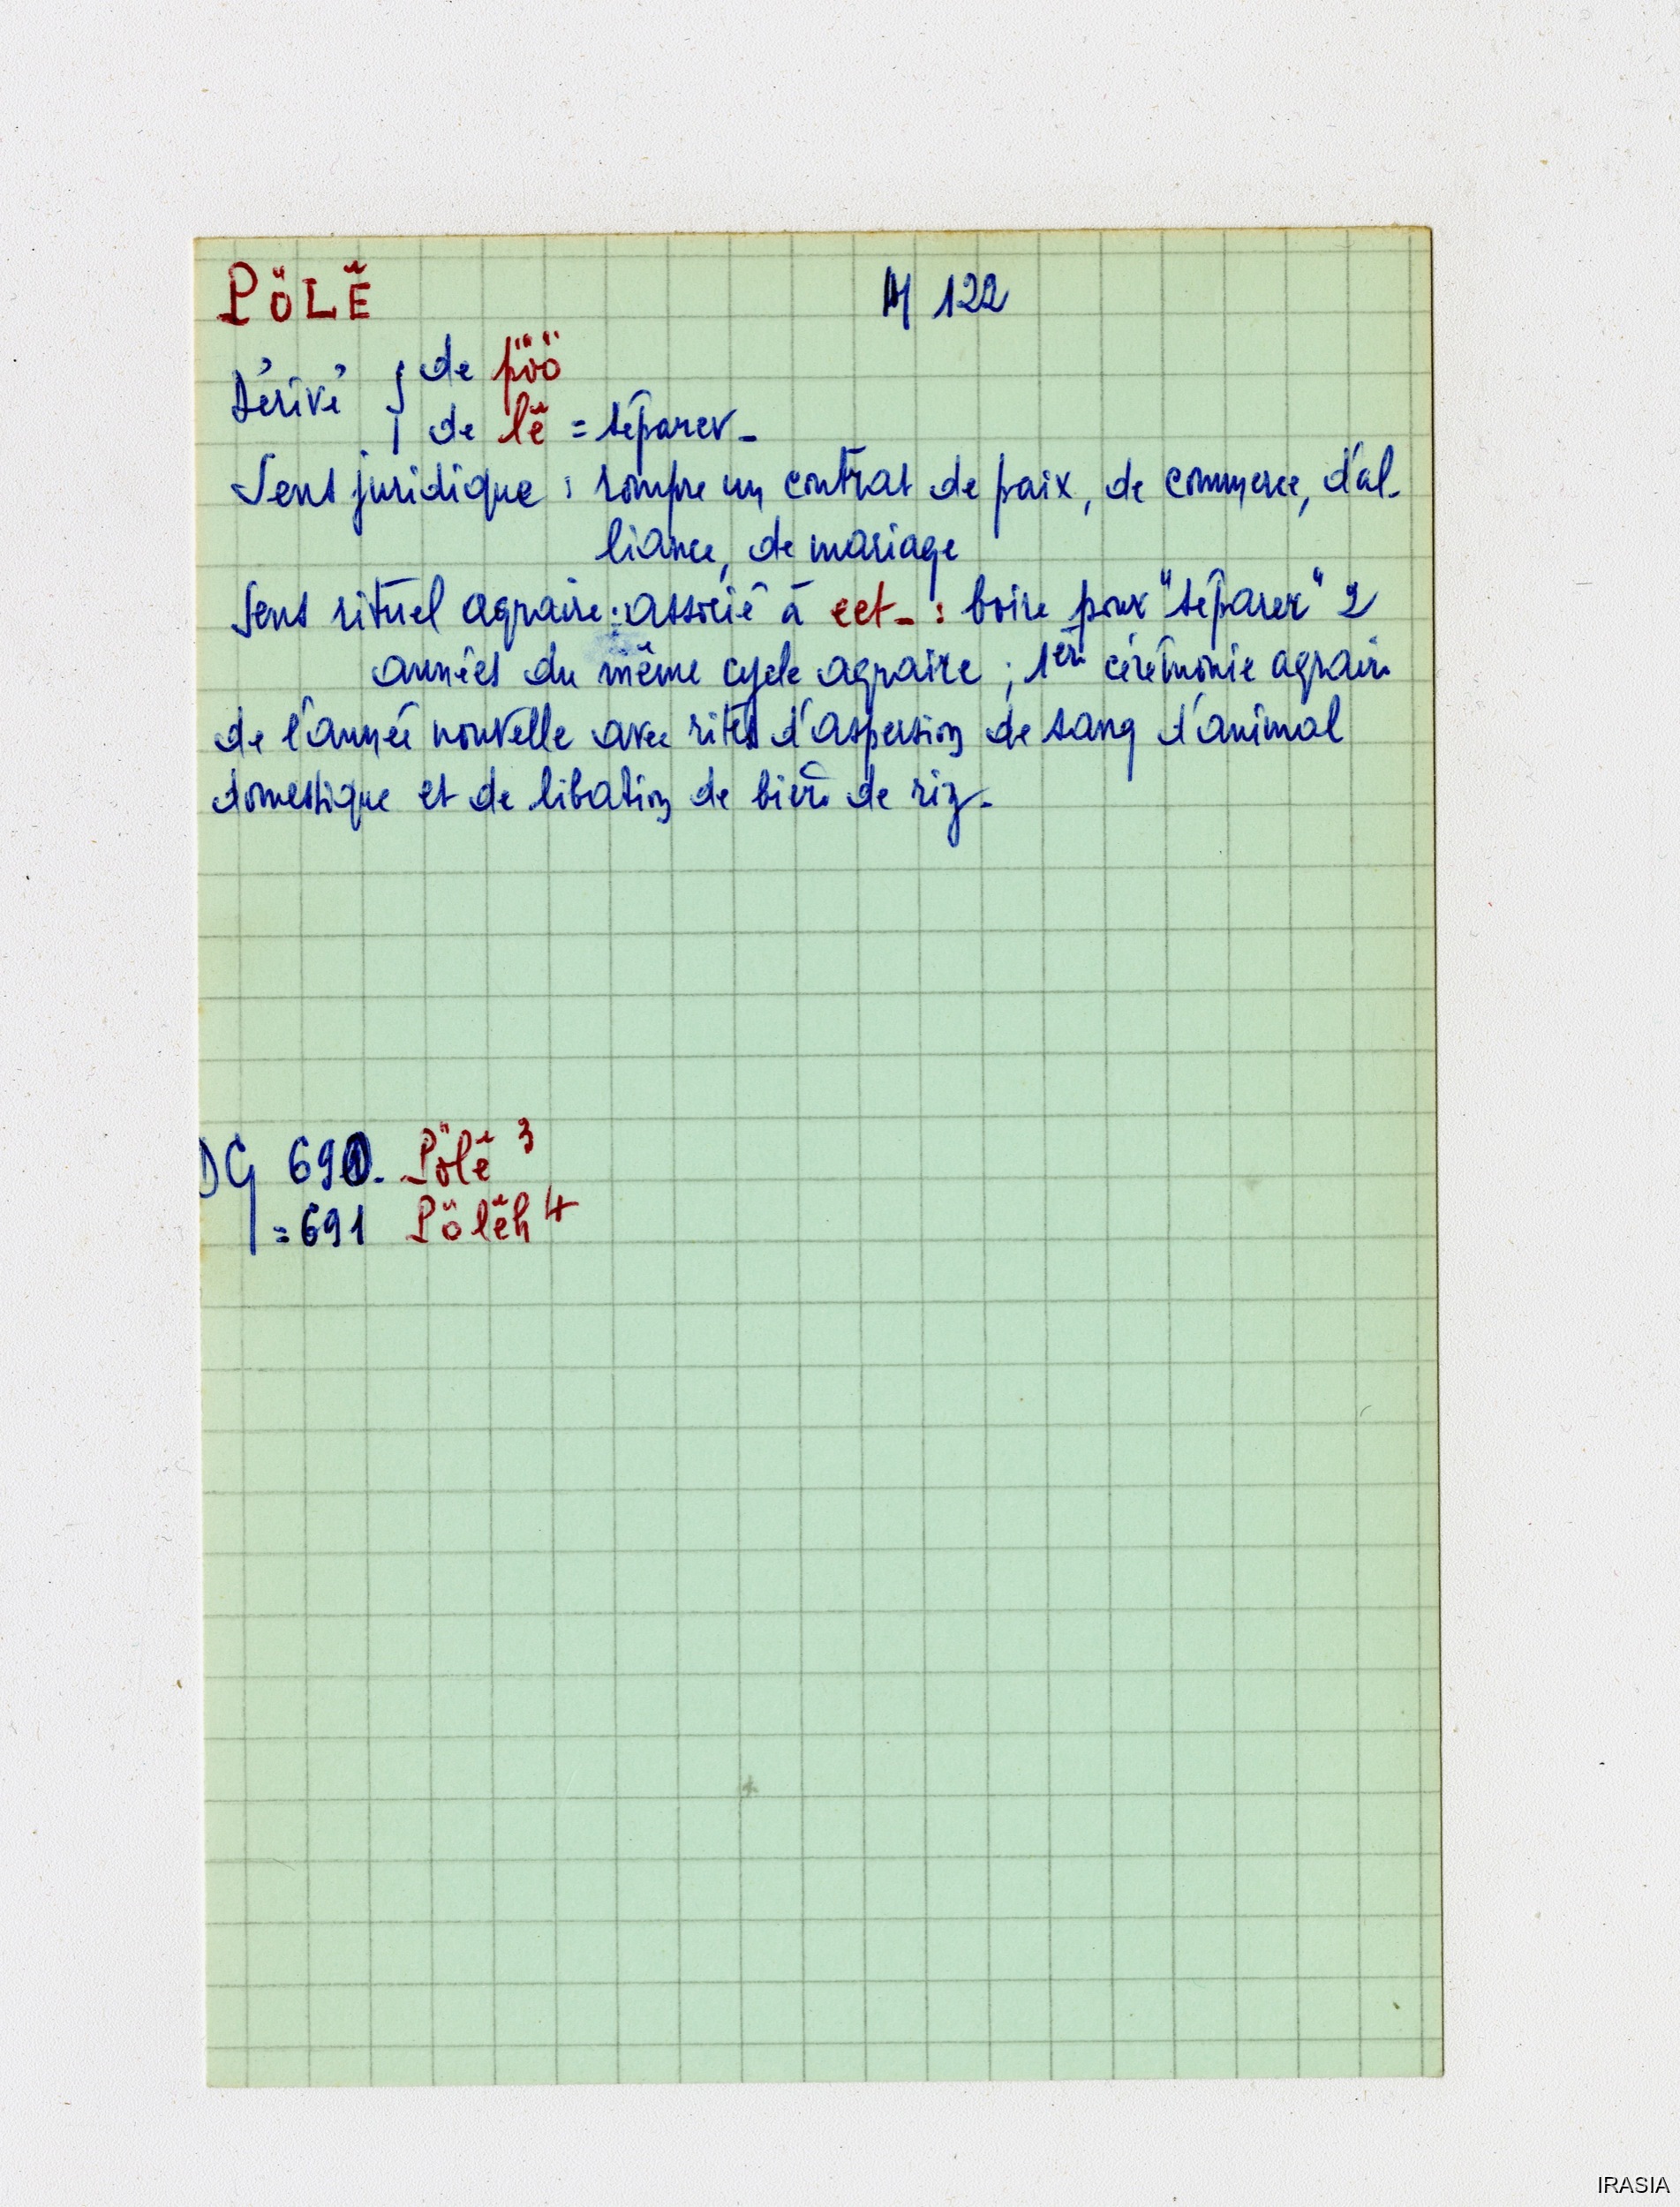 PÖLĔ M 122
Dérivé { de pöö
de lĕ = séparer -
Sens juridique : rompre un contrat de paix, de commerce, d'al-
liance, de mariage
Sens rituel agraire : associé à eet - : boire pour "séparer" 2
années du même cycle agraire ; 1ère cérémonie agraire
de l'année nouvelle avec rites d'aspersion de sang d'animal
domestique et de libation de bière de riz -
DG 690. Pölĕ 3
= 691 Pölĕh 4
IRASIA